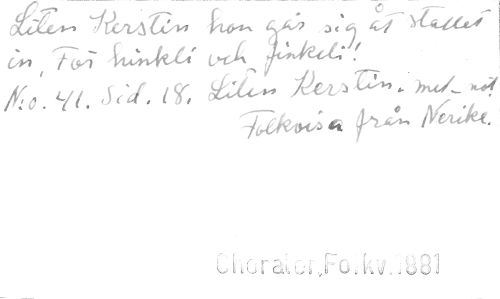 Liten Kerstin hon går sig åt stallet
in, För hinkeli och finkeli!
N:o. 41. Sid. 18. Liten Kerstin. met-not.
Folkvisa från Nerike.
Choraler,Folkv.1881